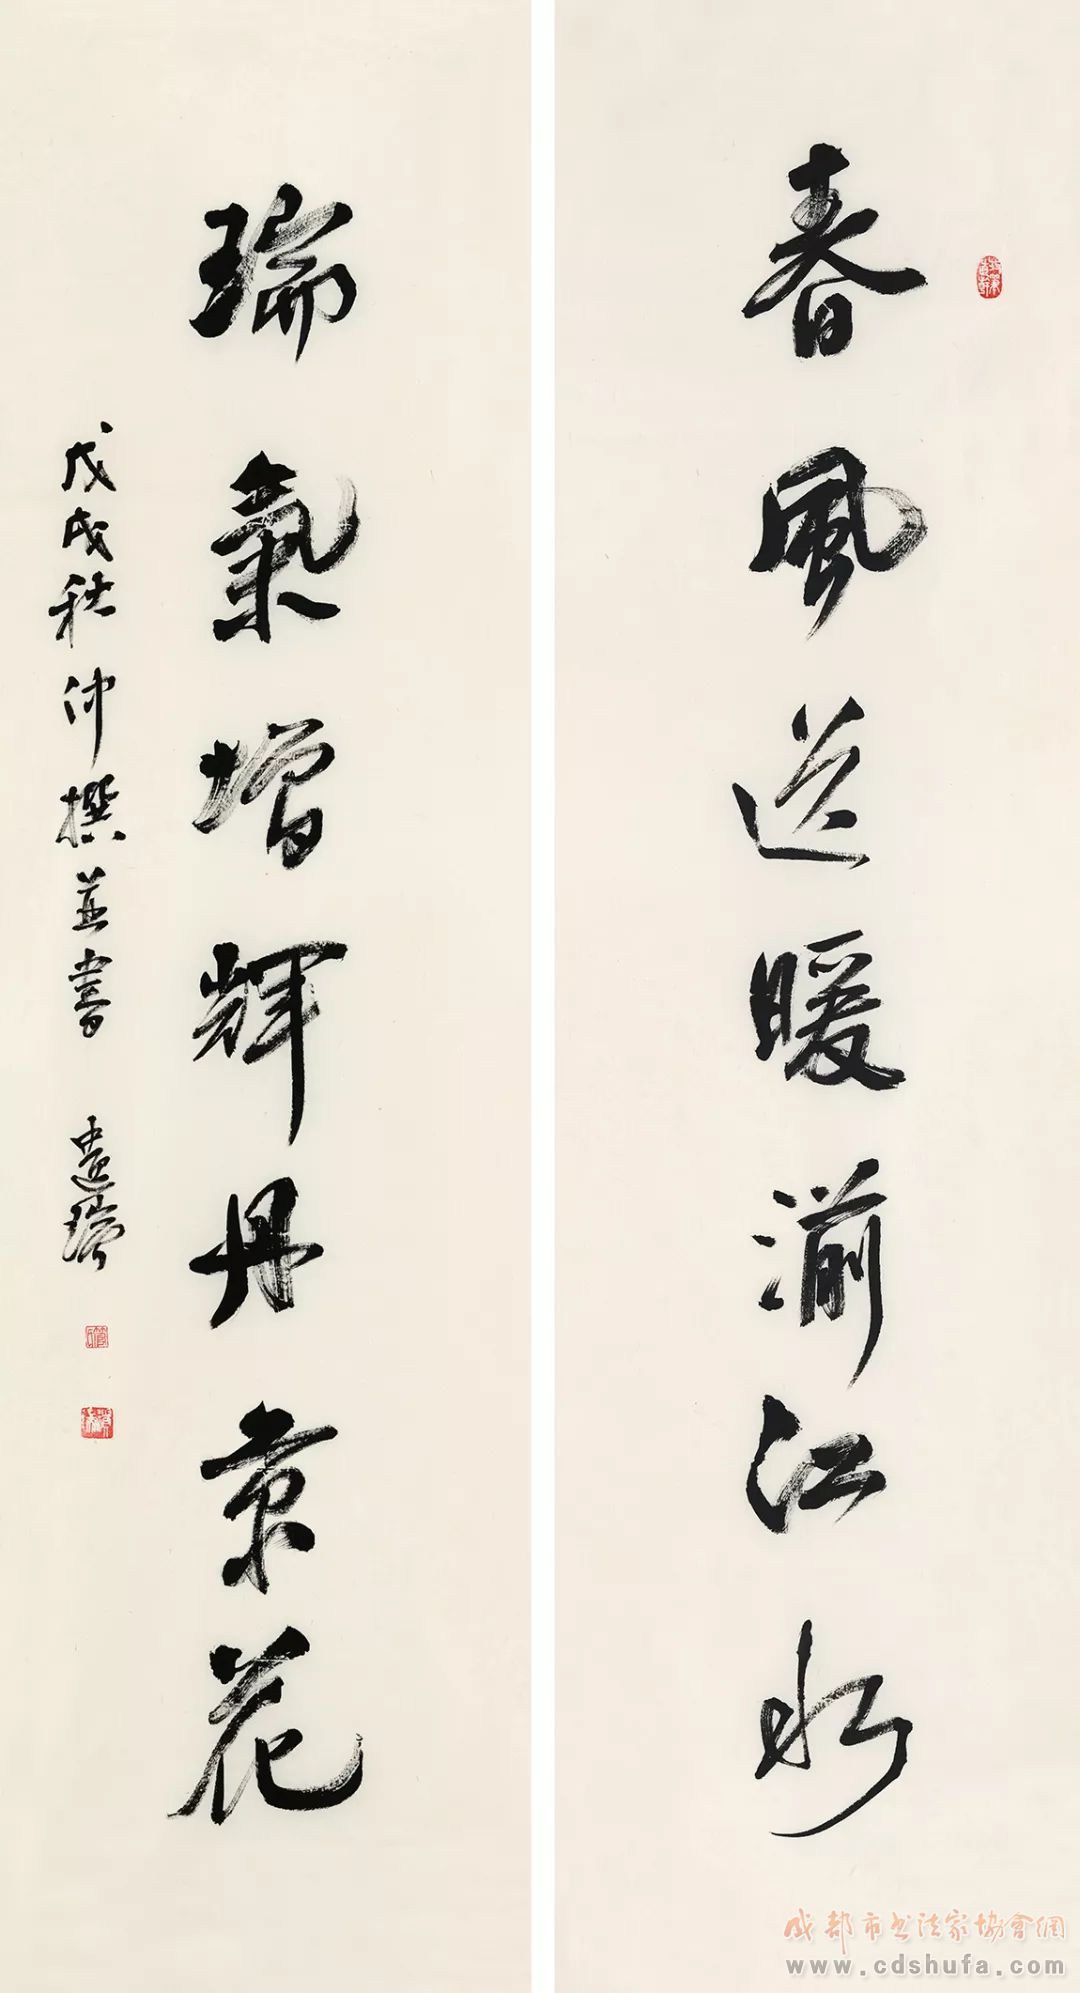 春風送暖湔江水
瑞氣增輝丹景花
戊戌秋仲撰並書 遺瑞
成都市书法家協會網
www.cdshufa.com